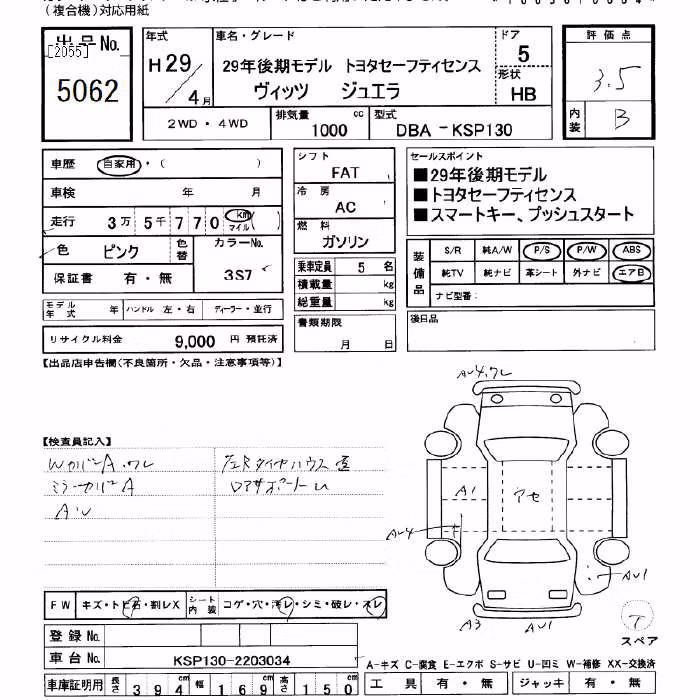 (複合機)対応用紙
出品No.
[2055]
5062
年式
H29/4月
車名・グレード
29年後期モデル トヨタセーフティセンス
ヴィッツ ジュエラ
ドア
5
形状
HB
評価点
3.5
内装
B
2WD・4WD
排気量
1000 cc
型式
DBA-KSP130
車歴
自家用・( )
車検 年 月
走行 3万 5千 7 7 0 km マイル ( )
色 ピンク
色替
カラーNo.
3S7
保証書 有・無
モデル年式 年
ハンドル 左・右
ディーラー・並行
リサイクル料金 9,000 円 預託済
シフト
FAT
冷房
AC
燃料
ガソリン
乗車定員 5 名
積載量 kg
総重量 kg
書類期限
月 日
セールスポイント
■29年後期モデル
■トヨタセーフティセンス
■スマートキー、プッシュスタート
装備品
S/R 純A/W P/S P/W ABS
純TV 純ナビ 革シート 外ナビ エアB
ナビ型番:
後日品
【出品店申告欄(不良箇所・欠品・注意事項等)】
【検査員記入】
WカバーA・ワレ
ミラーカバA
AU
A-4,ワレ
A1
アセ
A-4
AU1
A3
AU1
T
スペア
FW キズ・トビ石・割レX
シート内装 コゲ・穴・汚レ・シミ・破レ・スレ
登録No.
車台No. KSP130-2203034
車庫証明用 長さ 394cm 幅 169cm 高さ 150cm
A-キズ C-腐食 E-エクボ S-サビ U-凹ミ W-補修 XX-交換済
工具 有・無 ジャッキ 有・無